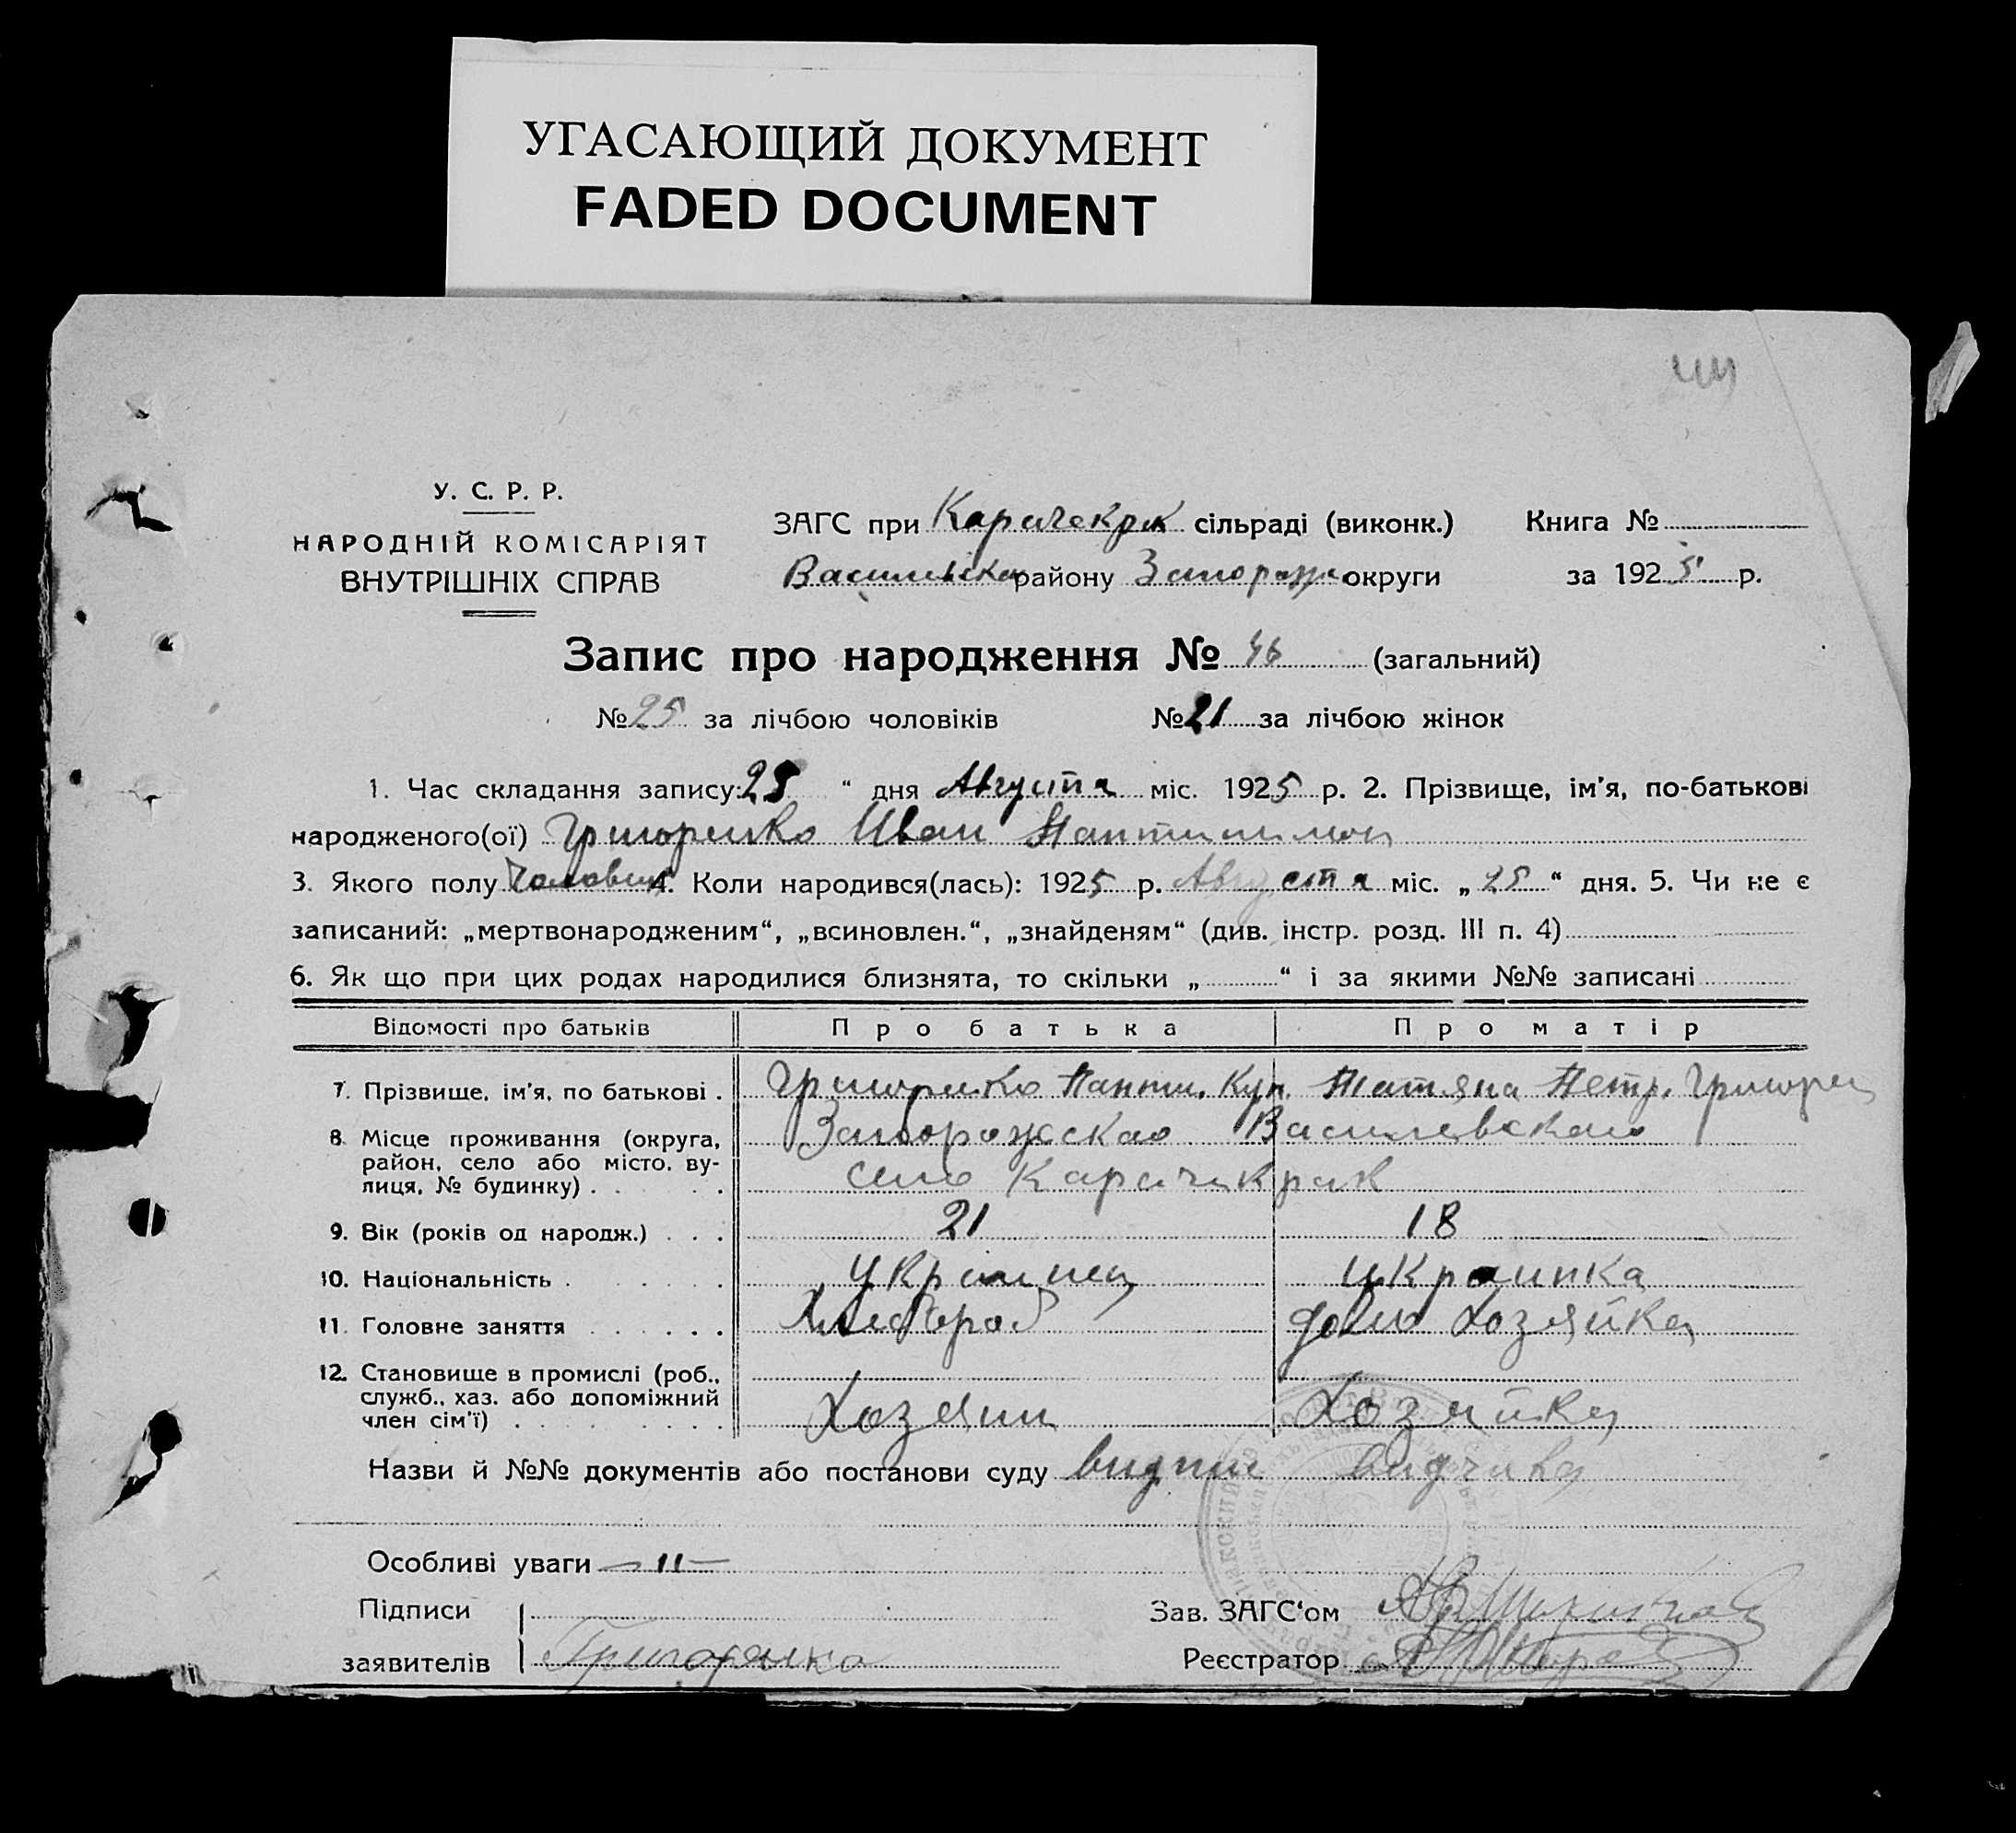 УГАСАЮЩИЙ ДОКУМЕНТ
FADED DOCUMENT
У. С. Р. Р.
НАРОДНІЙ КОМІСАРІЯТ
ВНУТРІШНІХ СПРАВ
ЗАГС при Карачекрак сільраді (виконк.)
Книга №
Василевско району Запорожс округи
за 1925 р.
Запис про народження № 46 (загальний)
№ 25 за лічбою чоловіків № 21 за лічбою жінок
1. Час складання запису: 25 “ дня Августа міс. 1925 р. 2. Прізвище, ім'я, по-батькові
народженого(ої) Григоренко Иван
3. Якого полу 4. Коли народився(лась): 1925 р. Августа міс. „ 25 “ дня. 5. Чи не є
записаний: „мертвонародженим“, „всиновлен.“, „знайденям“ (див. інстр. розд. III п. 4)
6. Як що при цих родах народилися близнята, то скільки „ “ і за якими №№ записані
Відомості про батьків Про батька Про матір
7. Прізвище, ім'я, по батькові . Григоренко Панти. Куп. Татяна Петр. Григорен
8. Місце проживання (округа, Запорожскао Василевскао
район, село або місто, ву-
лиця, № будинку) . село Карачикрак
9. Вік (років од народж.) . . . 21 18
10. Національність . украинец украинка
11. Головне заняття Хлебороб дом хозяйка
12. Становище в промислі (роб.,
служб., хаз. або допоміжний
член сім'ї) . Хозяин Хозяйка
Назви й №№ документів або постанови суду
Особливі уваги — 11 —
Підписи
Зав. ЗАГС‘ом
заявителів Григоренко
Реєстратор